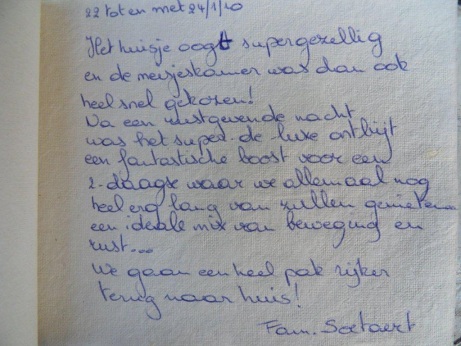 22 tot en met 24/1/10
Het huisje oogt supergezellig
en de meisjeskamer was dan ook
heel snel gekozen!
Na een rustgevende nacht
was het super-de luxe ontbijt
een fantastische boost voor een
2-daagse waar we allemaal nog
heel erg lang van zullen genieten...
een ideale mix van beweging en
rust....
We gaan een heel pak rijker
terug naar huis!
Fam. Soetaert